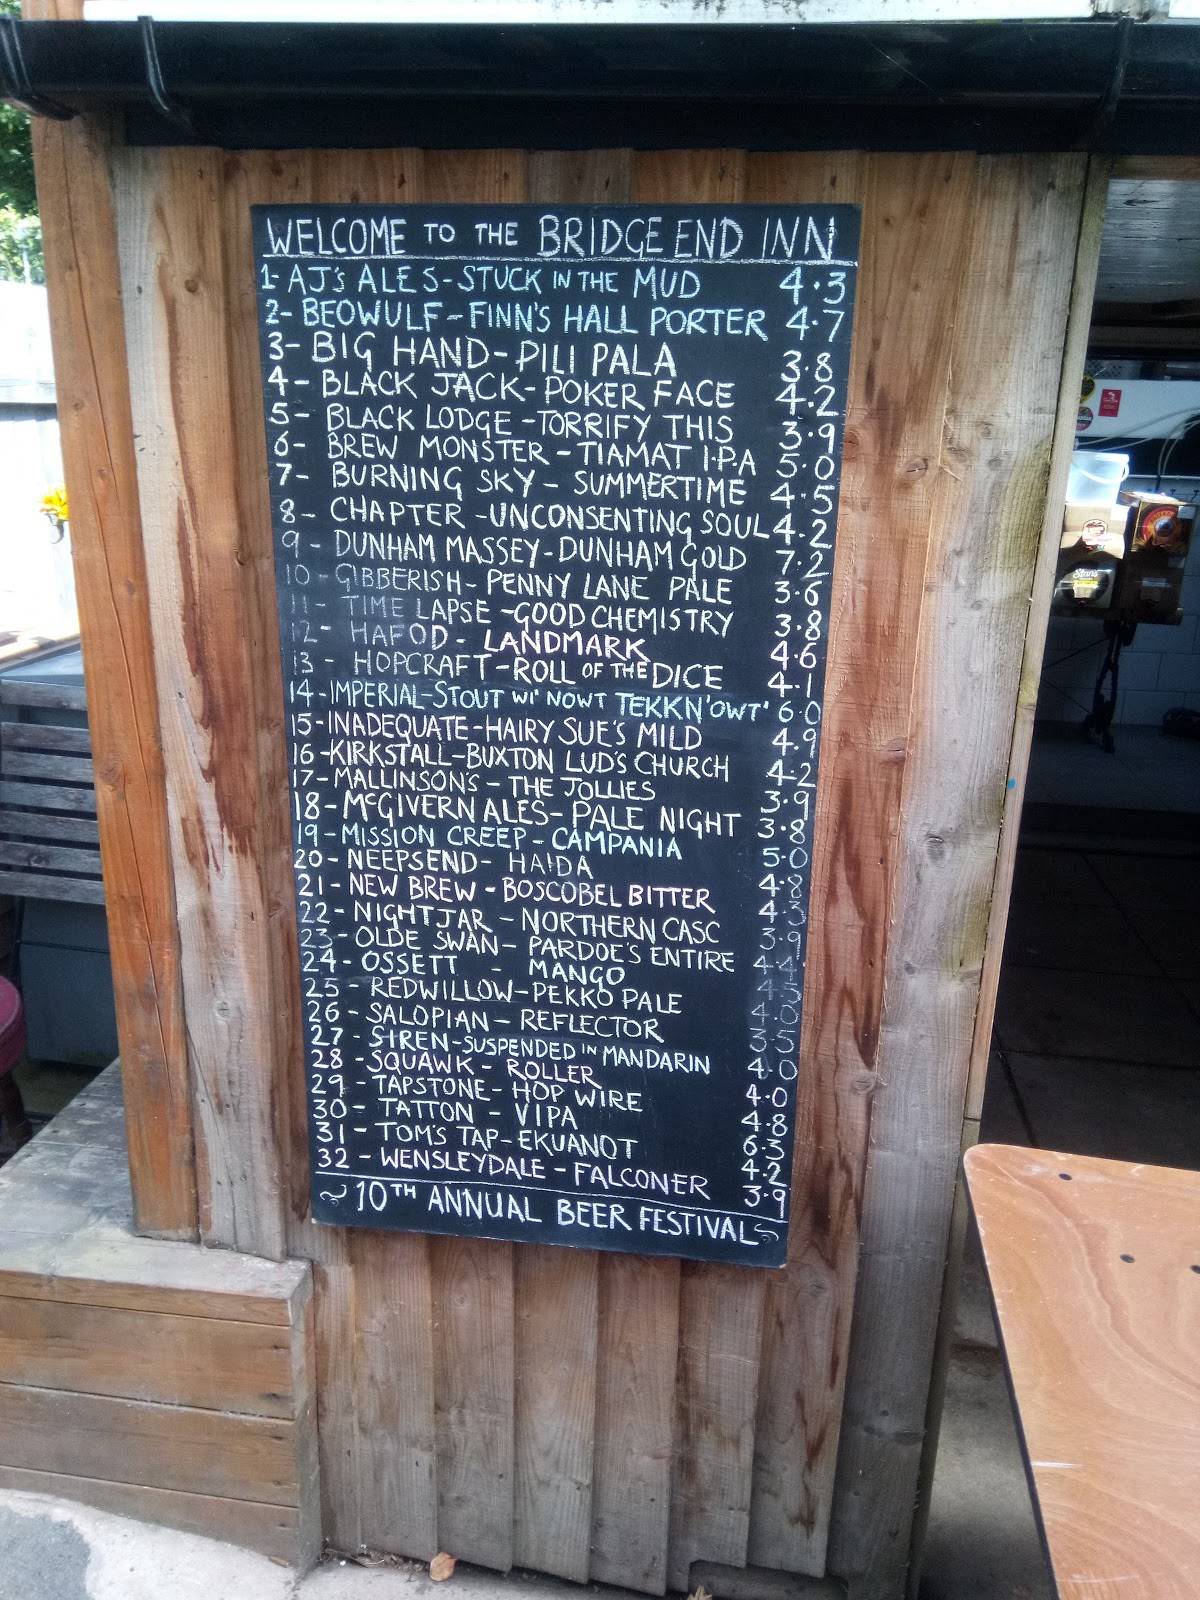 WELCOME TO THE BRIDGE END INN
1- AJ's ALES - STUCK IN THE MUD 4.3
2- BEOWULF - FINN'S HALL PORTER 4.7
3- BIG HAND - PILI PALA 3.8
4- BLACK JACK - POKER FACE 4.2
5- BLACK LODGE - TORRIFY THIS 3.9
6- BREW MONSTER - TIAMAT I.P.A 5.0
7- BURNING SKY - SUMMERTIME 4.5
8- CHAPTER - UNCONSENTING SOUL 4.2
9- DUNHAM MASSEY - DUNHAM GOLD 7.2
10- GIBBERISH - PENNY LANE PALE 3.6
11- TIME LAPSE - GOOD CHEMISTRY 3.8
12- HAFOD - LANDMARK 4.6
13- HOPCRAFT - ROLL OF THE DICE 4.1
14- IMPERIAL - STOUT WI' NOWT TEKKN 'OWT' 6.0
15- INADEQUATE - HAIRY SUE'S MILD 4.9
16- KIRKSTALL - BUXTON LUD'S CHURCH 4.2
17- MALLINSON'S - THE JOLLIES 3.9
18- McGIVERN ALES - PALE NIGHT 3.8
19- MISSION CREEP - CAMPANIA 5.0
20- NEEPSEND - HAIDA 4.8
21- NEW BREW - BOSCOBEL BITTER 4.3
22- NIGHTJAR - NORTHERN CASC 3.9
23- OLDE SWAN - PARDOE'S ENTIRE 4.4
24- OSSETT - MANGO 4.5
25- REDWILLOW - PEKKO PALE 4.0
26- SALOPIAN - REFLECTOR 3.5
27- SIREN - SUSPENDED IN MANDARIN 4.0
28- SQUAWK - ROLLER 4.0
29- TAPSTONE - HOP WIRE 4.8
30- TATTON - VIPA 6.3
31- TOM'S TAP - EKUANOT 4.2
32- WENSLEYDALE - FALCONER 3.9
10TH ANNUAL BEER FESTIVAL